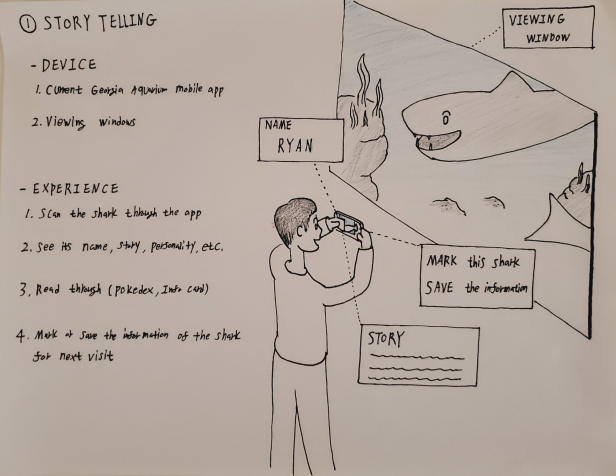 ① STORY TELLING
- DEVICE
1. Current Georgia Aquarium mobile app
2. Viewing windows
- EXPERIENCE
1. Scan the shark through the app
2. See its name, story, personality, etc.
3. Read through (Pokedex, Info card)
4. Mark or Save the information of the shark
for next visit
VIEWING
WINDOW
NAME
RYAN
MARK this shark
SAVE the information
STORY